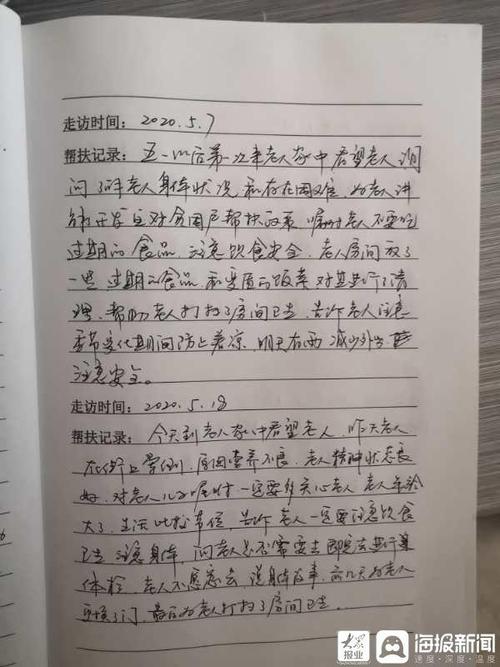 走访时间：2020.5.7
帮扶记录：五一以后第一次来老人家中看望老人，询
问了解老人身体状况和存在困难，为老人讲
解开发区对贫困户帮扶政策，嘱咐老人不要吃
过期的食品，注意饮食安全，老人房间放了
一些过期的食品和变质的饭菜对其进行了清
理，帮助老人打扫了房间卫生，告诉老人注意
季节变化期间防止着凉，明天有雨减少外出
注意安全。
走访时间：2020.5.18
帮扶记录：今天到老人家中看望老人，昨天老人
在街上晕倒，原因营养不良，老人精神状态良
好，对老人儿子嘱咐一定要多关心老人，老人年龄
大了，生活比较节俭，告诉老人一定要注意饮食
卫生注意身体，问老人需不需要去医院进行身
体检，老人不愿意去，说身体没事，前几天为老人
更换了门，最后为老人打扫了房间卫生。
大众报业
海报新闻
速度·深度·温度